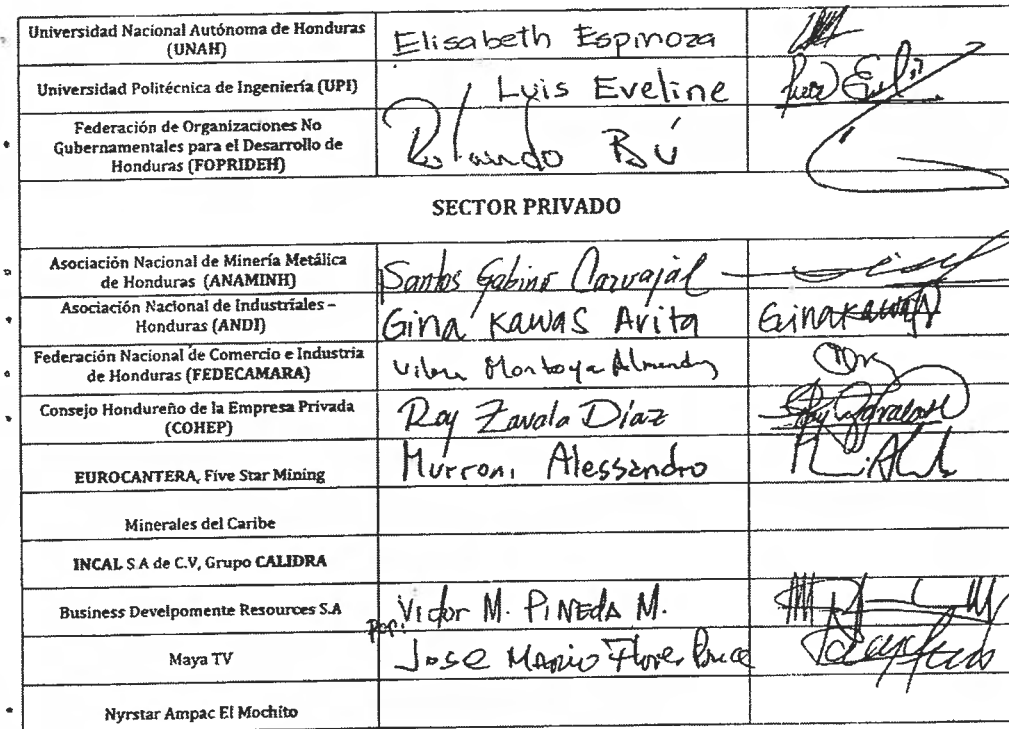 Universidad Nacional Autónoma de Honduras
(UNAH)
Elisabeth Espinoza
Universidad Politécnica de Ingeniería (UPI)
Luis Eveline
Federación de Organizaciones No
Gubernamentales para el Desarrollo de
Honduras (FOPRIDEH)
Rolando Bú
SECTOR PRIVADO
Asociación Nacional de Minería Metálica
de Honduras (ANAMINH)
Santos Gabino Carvajal
Asociación Nacional de Industriales –
Honduras (ANDI)
Gina Kawas Avita
Gina Kawas
Federación Nacional de Comercio e Industria
de Honduras (FEDECAMARA)
Montoya
Consejo Hondureño de la Empresa Privada
(COHEP)
Roy Zavala Díaz
EUROCANTERA, Five Star Mining
Murroni Alessandro
Minerales del Caribe
INCAL S.A de C.V, Grupo CALIDRA
Business Develpomente Resources S.A
por: Victor M. PINEDA M.
Maya TV
Jose Mario Flores
Nyrstar Ampac El Mochito